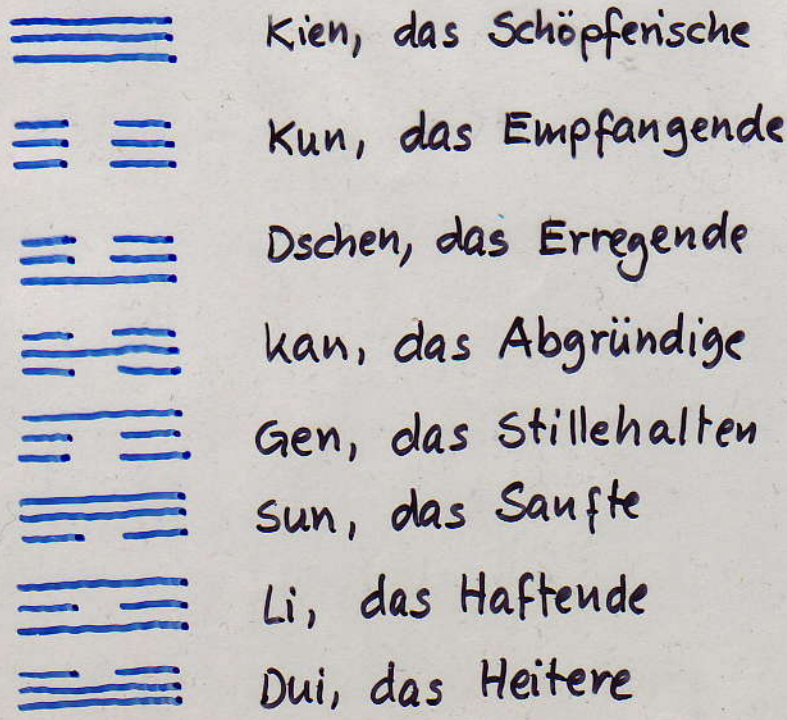 Kien, das Schöpferische
Kun, das Empfangende
Dschen, das Erregende
Kan, das Abgründige
Gen, das Stillehalten
Sun, das Sanfte
Li, das Haftende
Dui, das Heitere